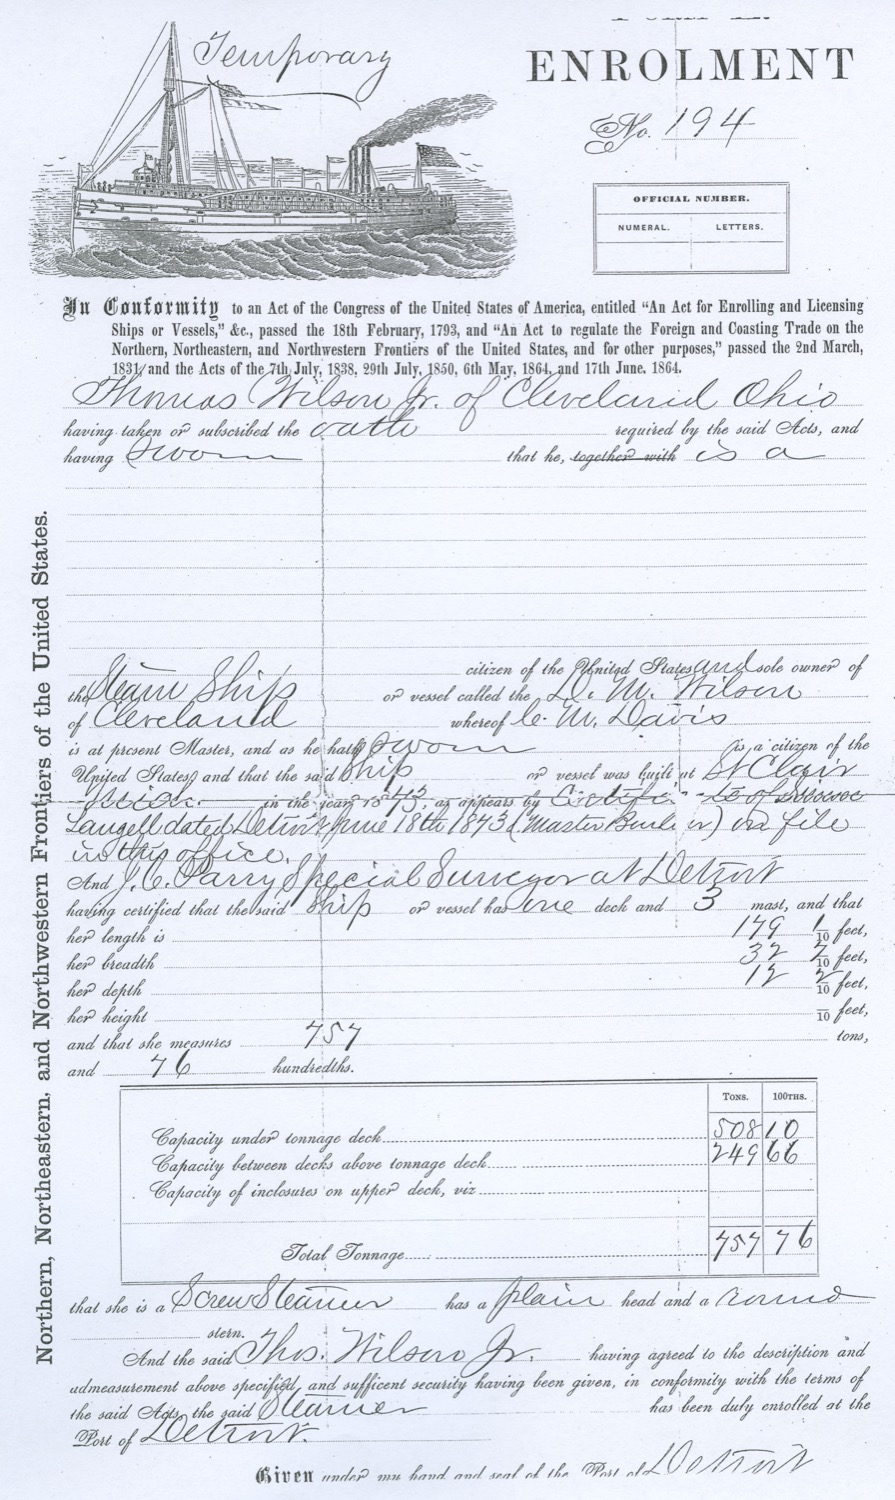 Temporary
ENROLMENT
No. 194
OFFICIAL NUMBER.
NUMERAL. LETTERS.
In Conformity to an Act of the Congress of the United States of America, entitled "An Act for Enrolling and Licensing
Ships or Vessels," &c., passed the 18th February, 1793, and "An Act to regulate the Foreign and Coasting Trade on the
Northern, Northeastern, and Northwestern Frontiers of the United States, and for other purposes," passed the 2nd March,
1831, and the Acts of the 7th July, 1838, 29th July, 1850, 6th May, 1864, and 17th June, 1864.
Thomas Wilson Jr. of Cleveland Ohio
having taken or subscribed the oath required by the said Acts, and
having sworn that he, together with is a
citizen of the United States and sole owner of
the Steam Ship or vessel called the D. M. Wilson
of Cleveland whereof C. M. Davis
is at present Master, and as he hath sworn is a citizen of the
United States, and that the said Ship or vessel was built at St Clair
in the year 1873, as appears by of
Langell dated Detroit June 18th 1873 (Master Builder) on file
in this office.
And J. C. Parry Special Surveyor at Detroit
having certified that the said Ship or vessel has one deck and 3 mast, and that
her length is 179 1/10 feet,
her breadth 32 /10 feet,
her depth 12 2/10 feet,
her height /10 feet,
and that she measures 757 tons,
and 76 hundredths.
TONS. 100THS.
Capacity under tonnage deck 508 10
Capacity between decks above tonnage deck 249 66
Capacity of inclosures on upper deck, viz
Total Tonnage 757 76
that she is a Screw Steamer has a plain head and a round
stern.
And the said Thos. Wilson Jr. having agreed to the description and
admeasurement above specified, and sufficent security having been given, in conformity with the terms of
the said Acts, the said Steamer has been duly enrolled at the
Port of Detroit.
Given under my hand and seal of the Port of Detroit
Northern, Northeastern, and Northwestern Frontiers of the United States.